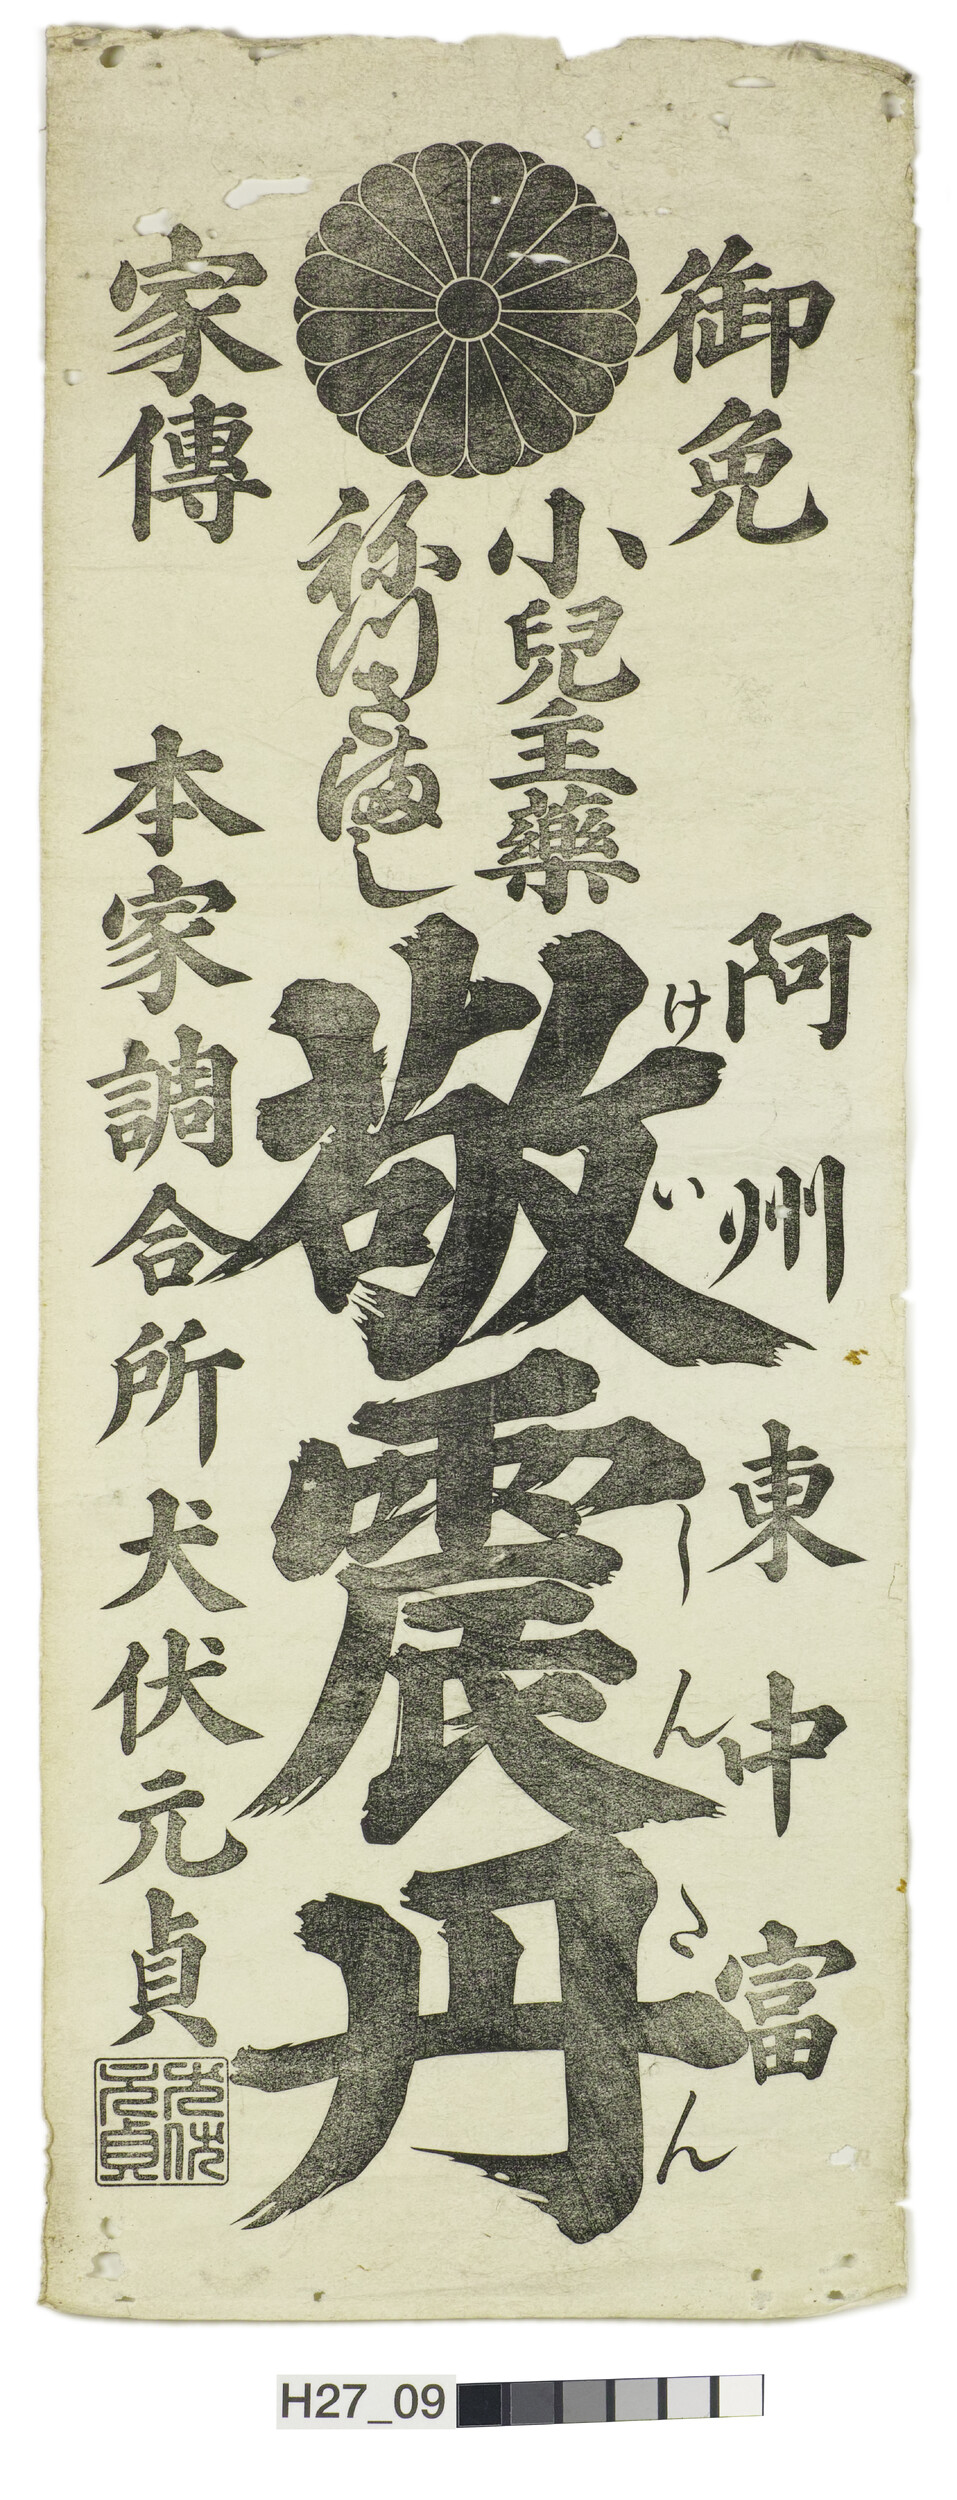 御免
阿州東中富
小兒主藥
ねつさまし
けいしんたん
敬震丹
家傳
本家調合所犬伏元貞
犬伏元貞
H27_09